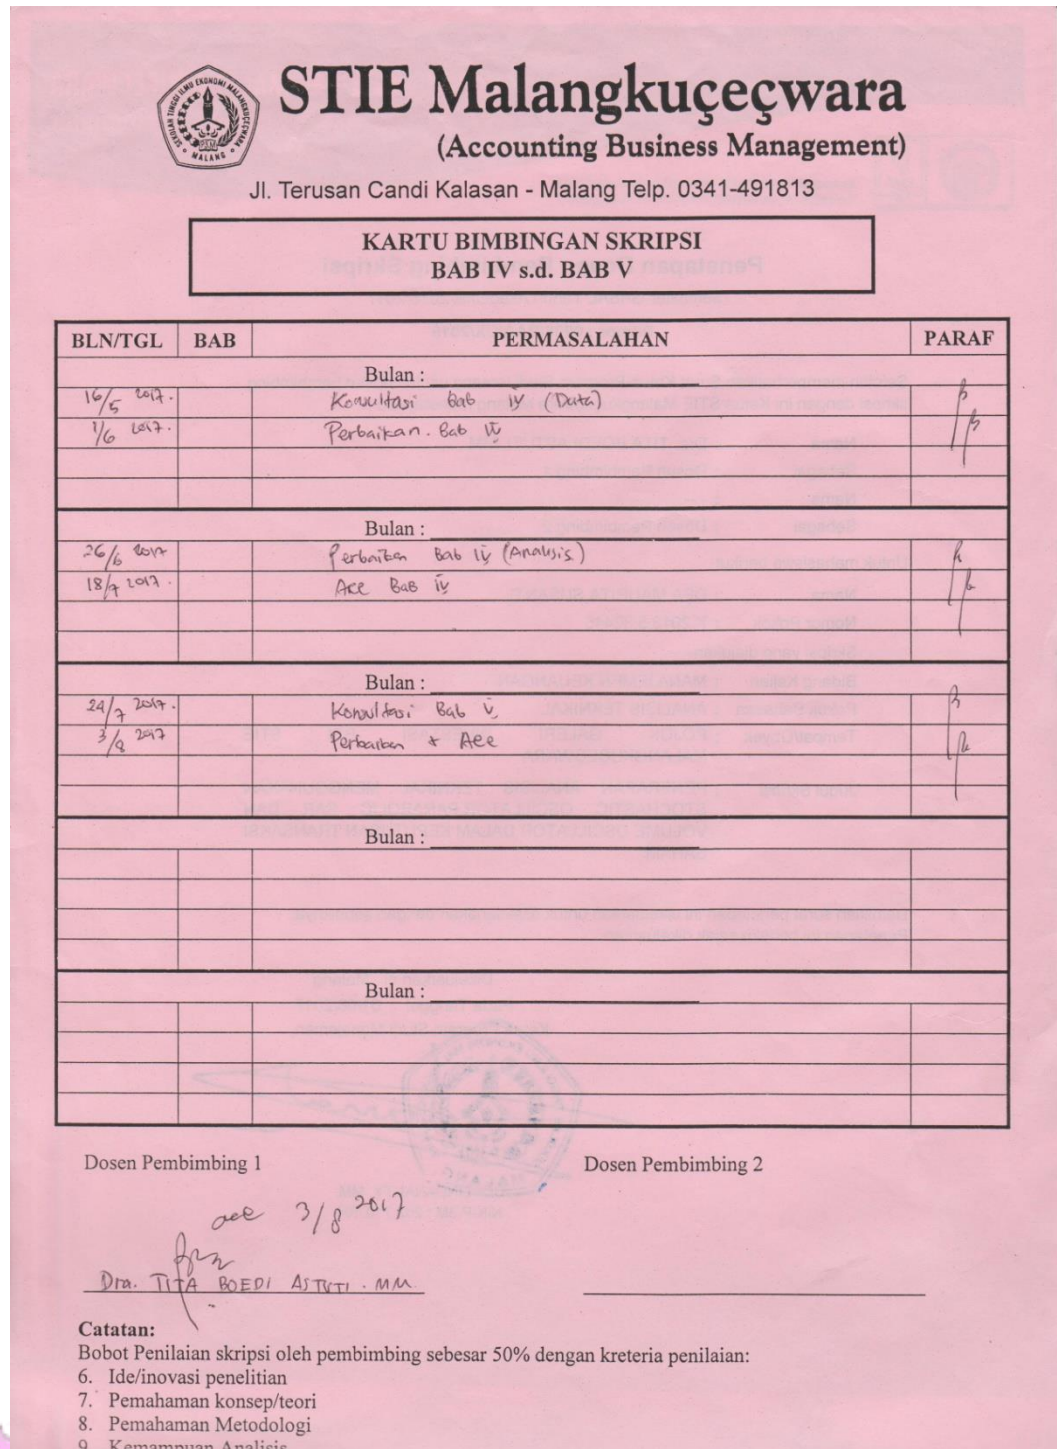 STIE Malangkuçeçwara
(Accounting Business Management)
SEKOLAH TINGGI ILMU EKONOMI MALANGKUÇEÇWARA
MALANG
Jl. Terusan Candi Kalasan - Malang Telp. 0341-491813
KARTU BIMBINGAN SKRIPSI
BAB IV s.d. BAB V
BLN/TGL BAB PERMASALAHAN PARAF
Bulan :
16/5 2017. Konsultasi Bab IV (Data)
1/6 2017. Perbaikan. Bab IV
Bulan :
26/6 2017 Perbaikan Bab IV (Analisis)
18/7 2017. Acc Bab IV
Bulan :
24/7 2017. Konsultasi Bab V
3/8 2017 Perbaikan + Acc
Bulan :
Bulan :
Dosen Pembimbing 1 Dosen Pembimbing 2
acc 3/8 2017
Dra. TITA BOEDI ASTUTI. MM
Catatan:
Bobot Penilaian skripsi oleh pembimbing sebesar 50% dengan kreteria penilaian:
6. Ide/inovasi penelitian
7. Pemahaman konsep/teori
8. Pemahaman Metodologi
9. Kemampuan Analisis